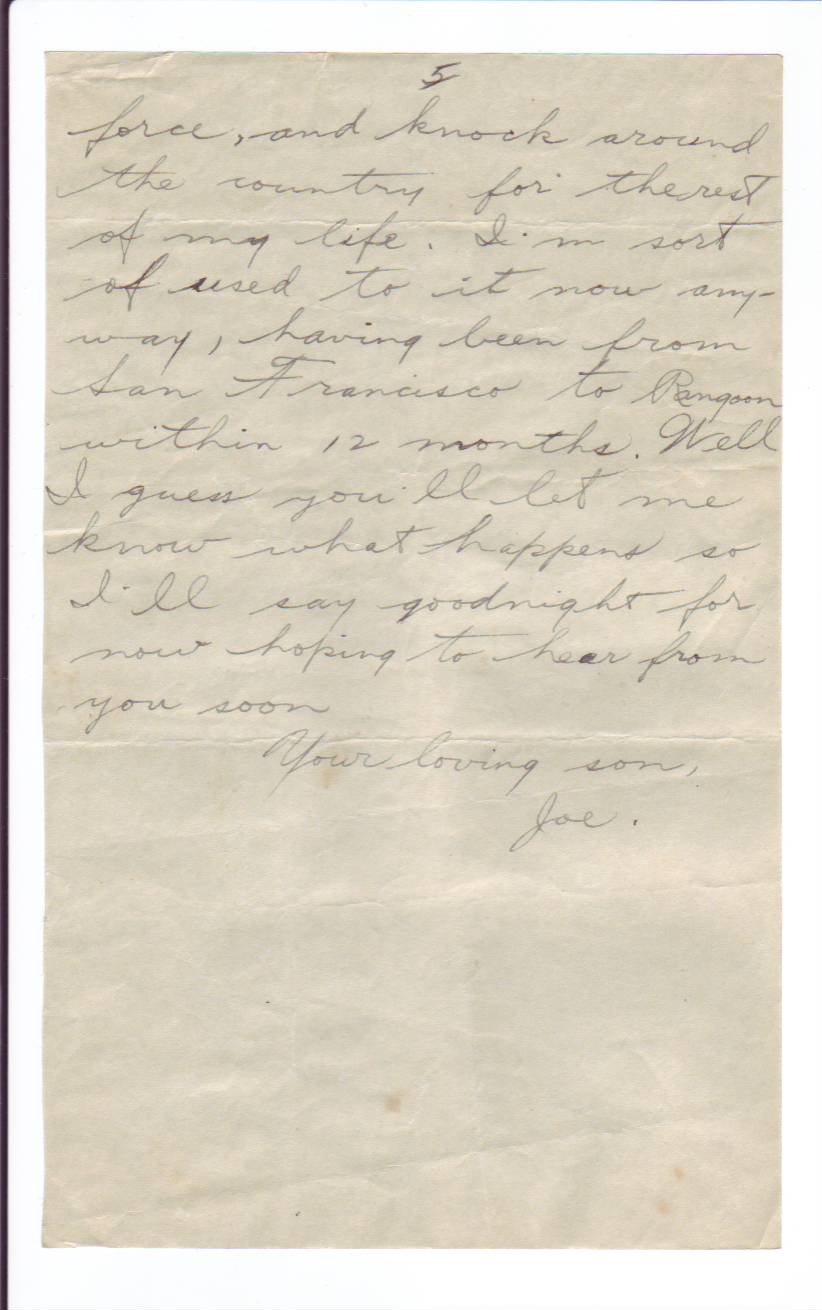 5
force, and knock around
the country for the rest
of my life. I'm sort
of used to it now any-
way, having been from
San Francisco to Rangoon
within 12 months. Well
I guess you'll let me
know what happens so
I'll say goodnight for
now hoping to hear from
you soon
Your loving son,
Joe.